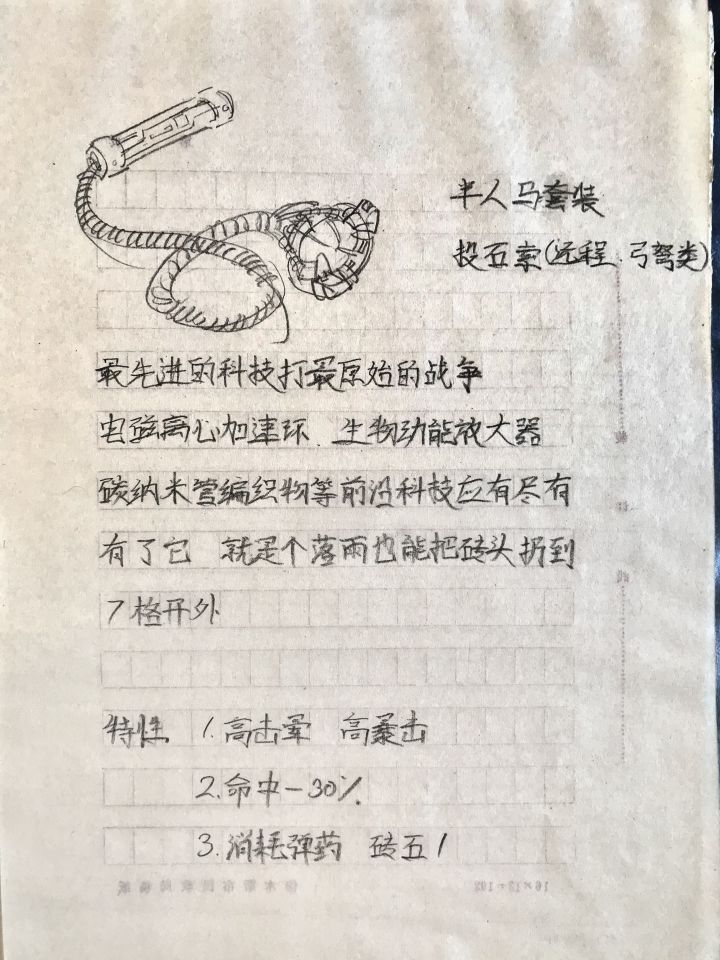 半人马套装
投石索(远程 弓弩类)
最先进的科技打最原始的战争
电磁离心加速环 生物动能放大器
碳纳米管编织物等前沿科技应有尽有
有了它 就是个落雨也能把砖头扔到
7格开外
特性 1.高击晕 高暴击
2.命中-30%
3.消耗弹药 砖瓦1
16×12=192